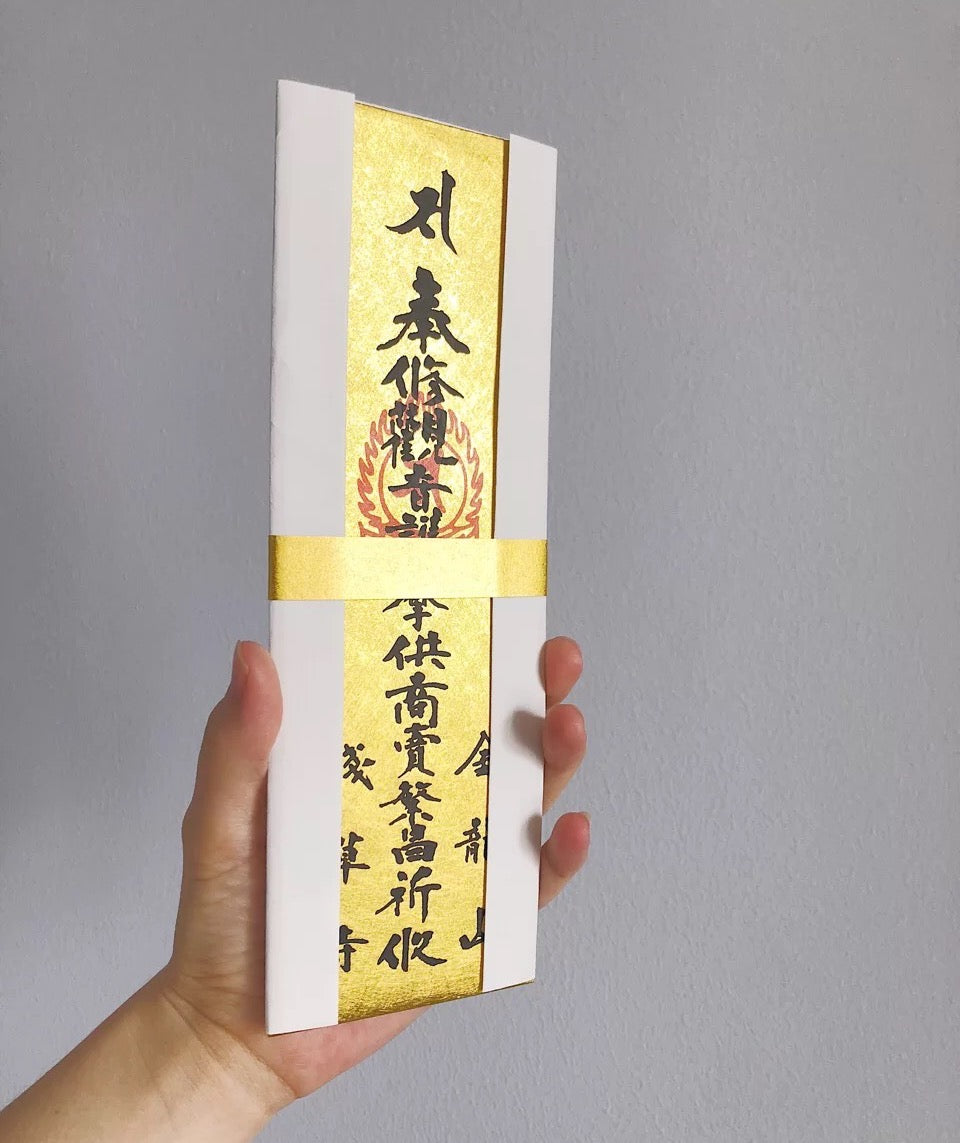 金龍山
奉修觀音護摩供商賣繁昌祈攸
淺草寺